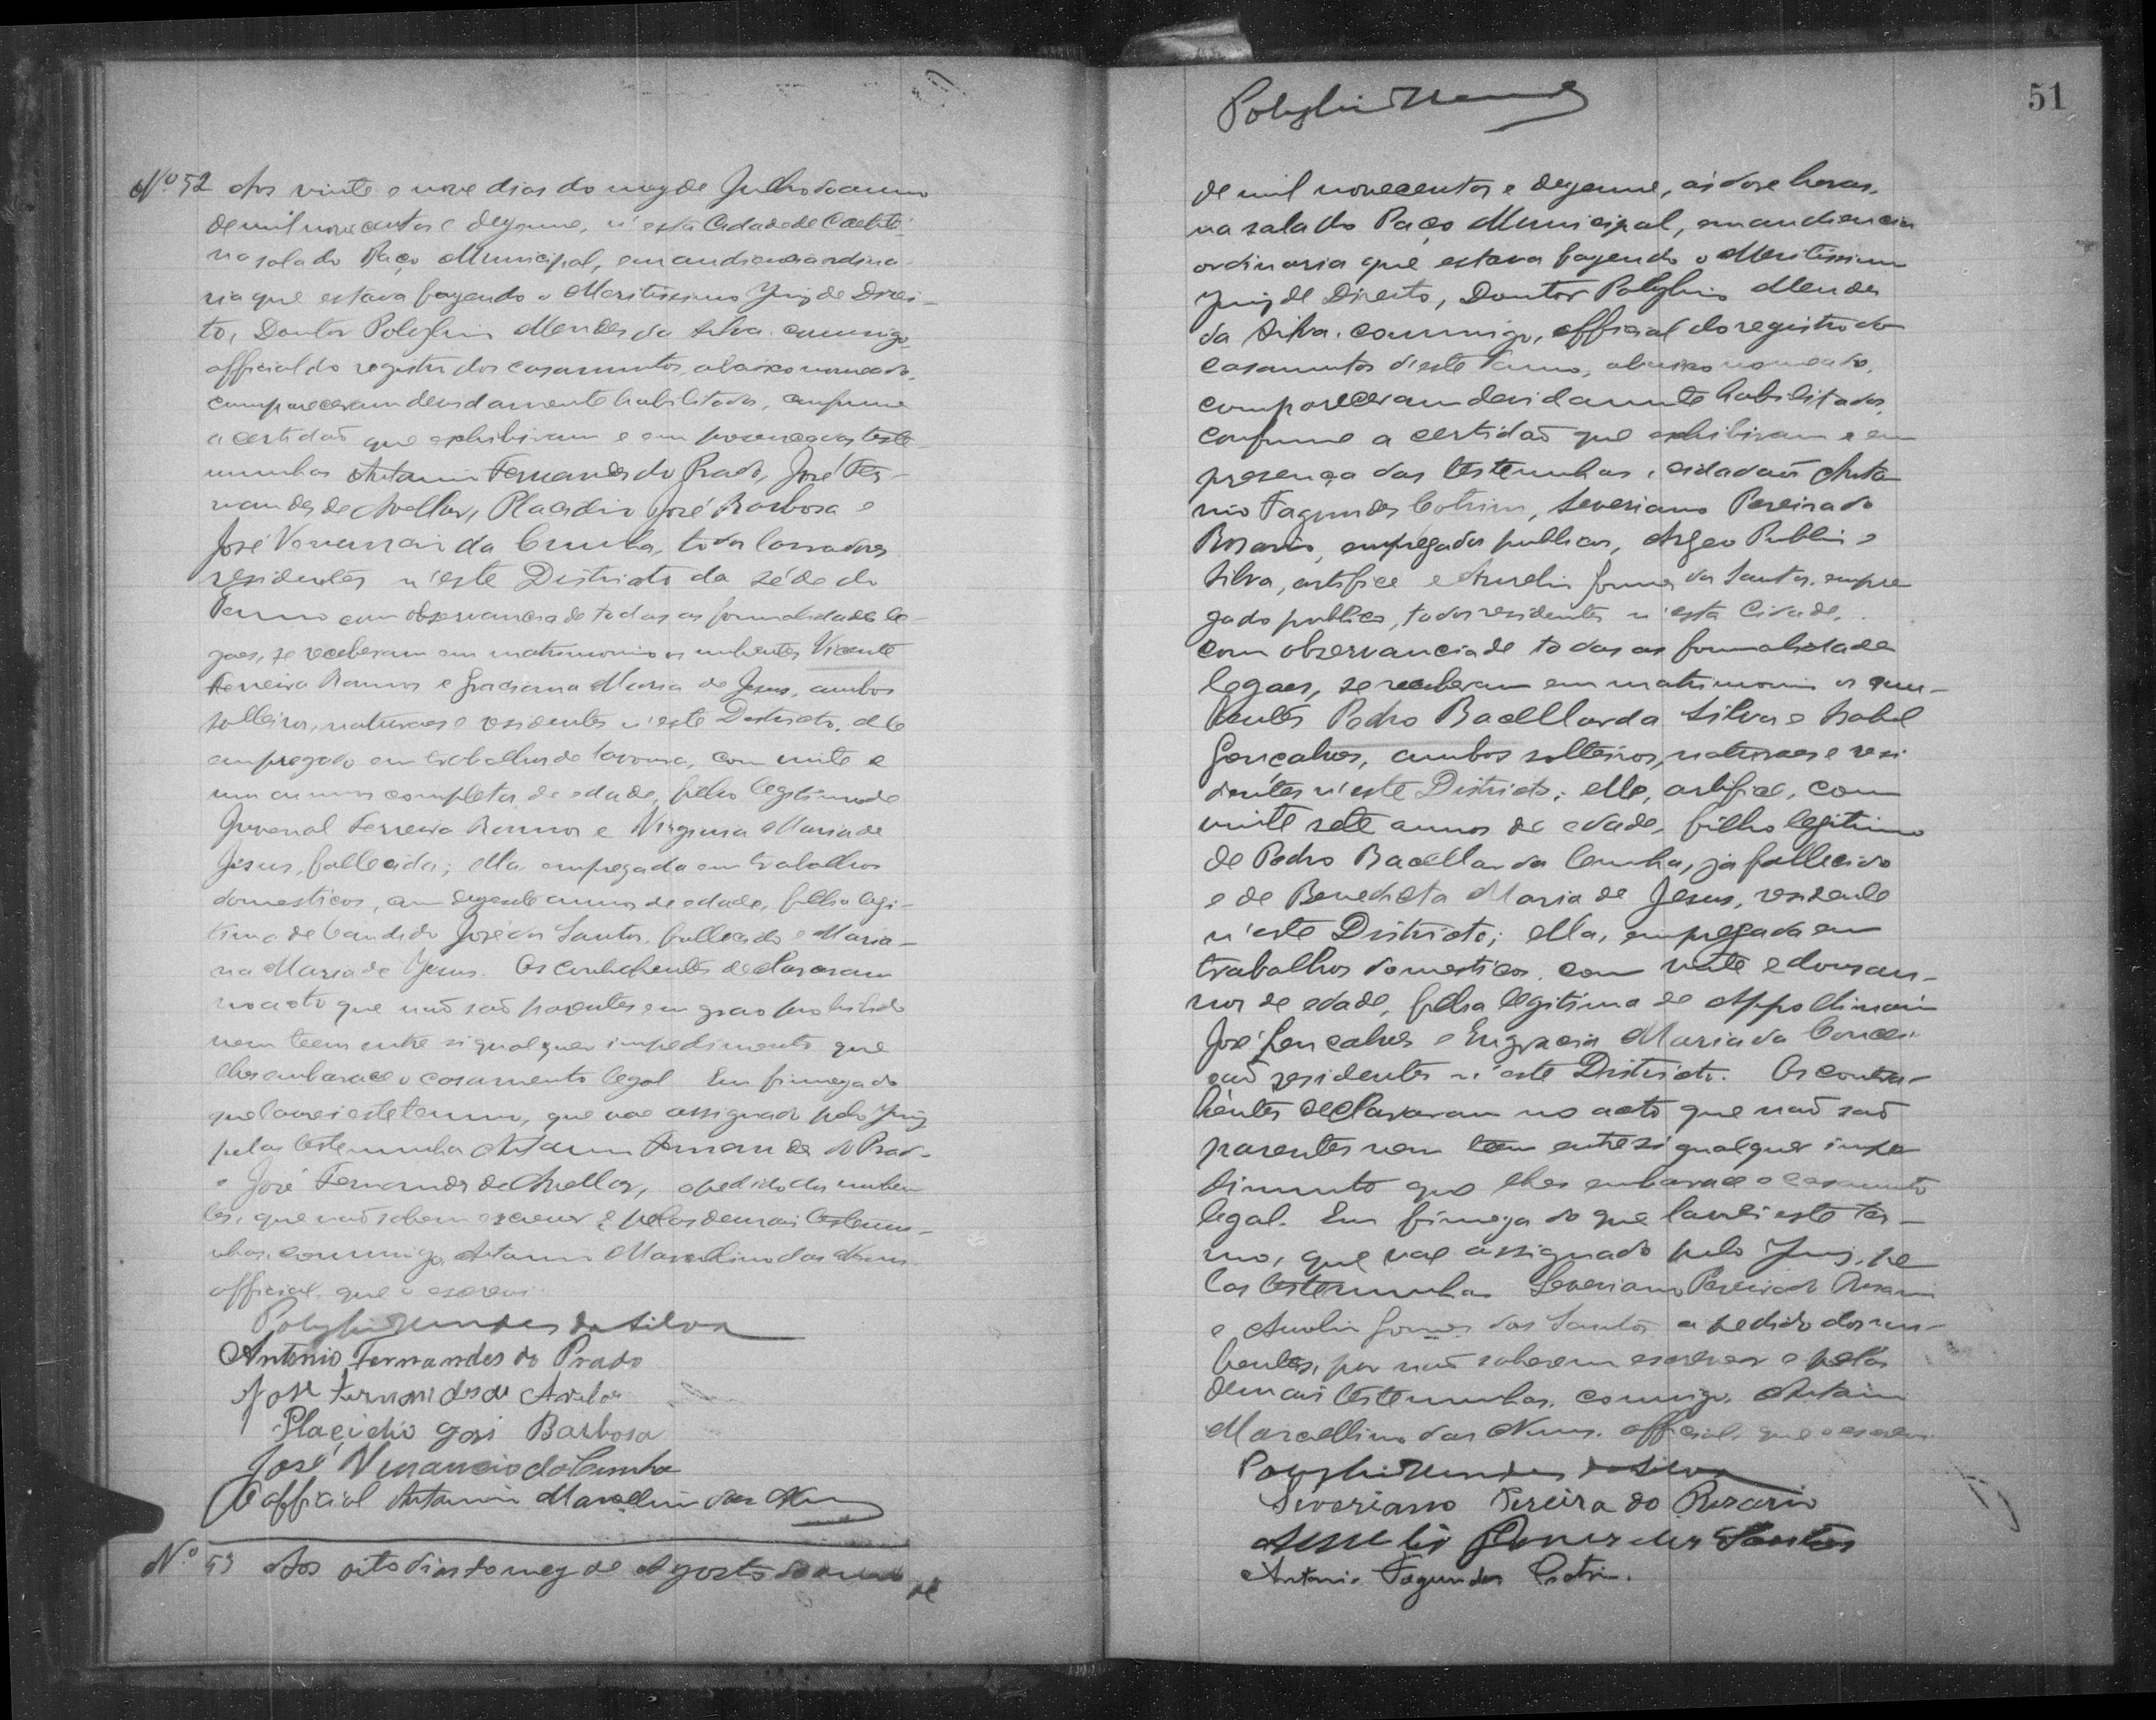 Nº 52 Aos vinte e nove dias do mez de Julho do anno
de mil novecentos e dezenove, n'esta Cidade de Caetité
na sala do Paço Municipal, em audiencia ordina-
ria que estava fazendo o Meritissimo Juiz de Direi-
to, Doutor Polybio Mendes da Silva, commigo,
official do registro dos casamentos, abaixo nomeado,
compareceram devidamente habilitados, conforme
a certidaõ que exhibiram e em presença das teste-
munhas Antonio Fernandes do Prado, José Fer-
nandes de Avellar, Placidio José Barbosa e
José Venancio da Cunha, todos lavradores
residentes n'este Districto da séde do
Termo com observancia de todas as formalidades le-
gaes, se receberam em matrimonio os nubentes Vicente
Ferreira Ramos e Graciana Maria de Jesus, ambos
solteiros, naturaes e residentes n'este Districto, elle
empregado em trabalhos de lavoura, com vinte e
um annos completos de edade, filho legitimo de
Juvenal Ferreira Ramos e Virginia Maria de
Jesus, fallecida; ella, empregada em trabalhos
domesticos, com dezesete annos de edade, filha legi-
tima de Candido José dos Santos, fallecido e Maria-
na Maria de Jesus. Os contrahentes declararam
no acto que naõ saõ parentes em grao prohibido
nem teem entre si qualquer impedimento que
lhes embarace o casamento legal Em firmeza do
que lavrei este termo, que vae assignado pelo Juiz
pelas testemunhas Antonio Fernandes do Prado
e José Fernandes de Avellar, a pedido dos nuben-
tes, que naõ sabem escrever e pelas demais testemu-
nhas, commigo, Antonio Marcellino das Neves
official, que o escrevi.
Polybio Mendes da Silva
Antonio Fernandes do Prado
José Fernandes de Avelar
Placidio José Barbosa
José Venancio da Cunha
O official Antonio Marcellino das Neves
Nº 53 Aos oito dias do mez de Agosto do anno de
51
Polybio Mendes
de mil novecentos e dezenove, ás doze horas,
na sala do Paço Municipal, em audiencia
ordinaria que estava fazendo o Meritissimo
Juiz de Direito, Doutor Polybio Mendes
da Silva, commigo, official do registro dos
casamentos d'este Termo, abaixo nomeado,
compareceram devidamente habilitados,
conforme a certidaõ que exhibiram e em
presença das testemunhas, cidadaõs Anto-
nio Fagundes Cotrim, Severiano Pereira do
Rosario, empregados publicos, Argeo Publio e
Silva, artifice e Aurelio Gomes dos Santos, empre
gado publico, todos residentes n'esta Cidade,
com observancia de todas as formalidades
legaes, se receberam em matrimonio os con-
hentes Pedro Bacellar da Silva e Isabel
Gonçalves, ambos solteiros, naturaes e resi
dentes n'este Districto; elle, artifice, com
vinte sete annos de edade, filho legitimo
de Pedro Bacellar da Cunha, já fallecido
e de Benedicta Maria de Jesus, residente
n'este Districto; ella, empregada em
trabalhos domesticos, com vinte e dous an-
nos de edade, filha legitima de Appollinario
José Gonçalves e Engracia Maria da Concei-
çaõ residentes n'este Districto. Os contra-
hentes declararam no acto que naõ saõ
parentes nem tem entre si qualquer impe
dimento que lhes embarace o casamento
legal. Em firmeza do que lavrei este ter-
mo, que vae assignado pelo Juiz, pe
las testemunhas Severiano Pereira do Rosario
e Aurelio Gomes dos Santos a pedido dos nu-
bentes, por naõ saberem escrever e pelas
demais testemunhas, commigo, Antonio
Marcellino das Neves, official, que o escrevi
Polybio Mendes da Silva
Severiano Pereira do Rosario
Aurelio Gomes dos Santos
Antonio Fagundes Cotrim.